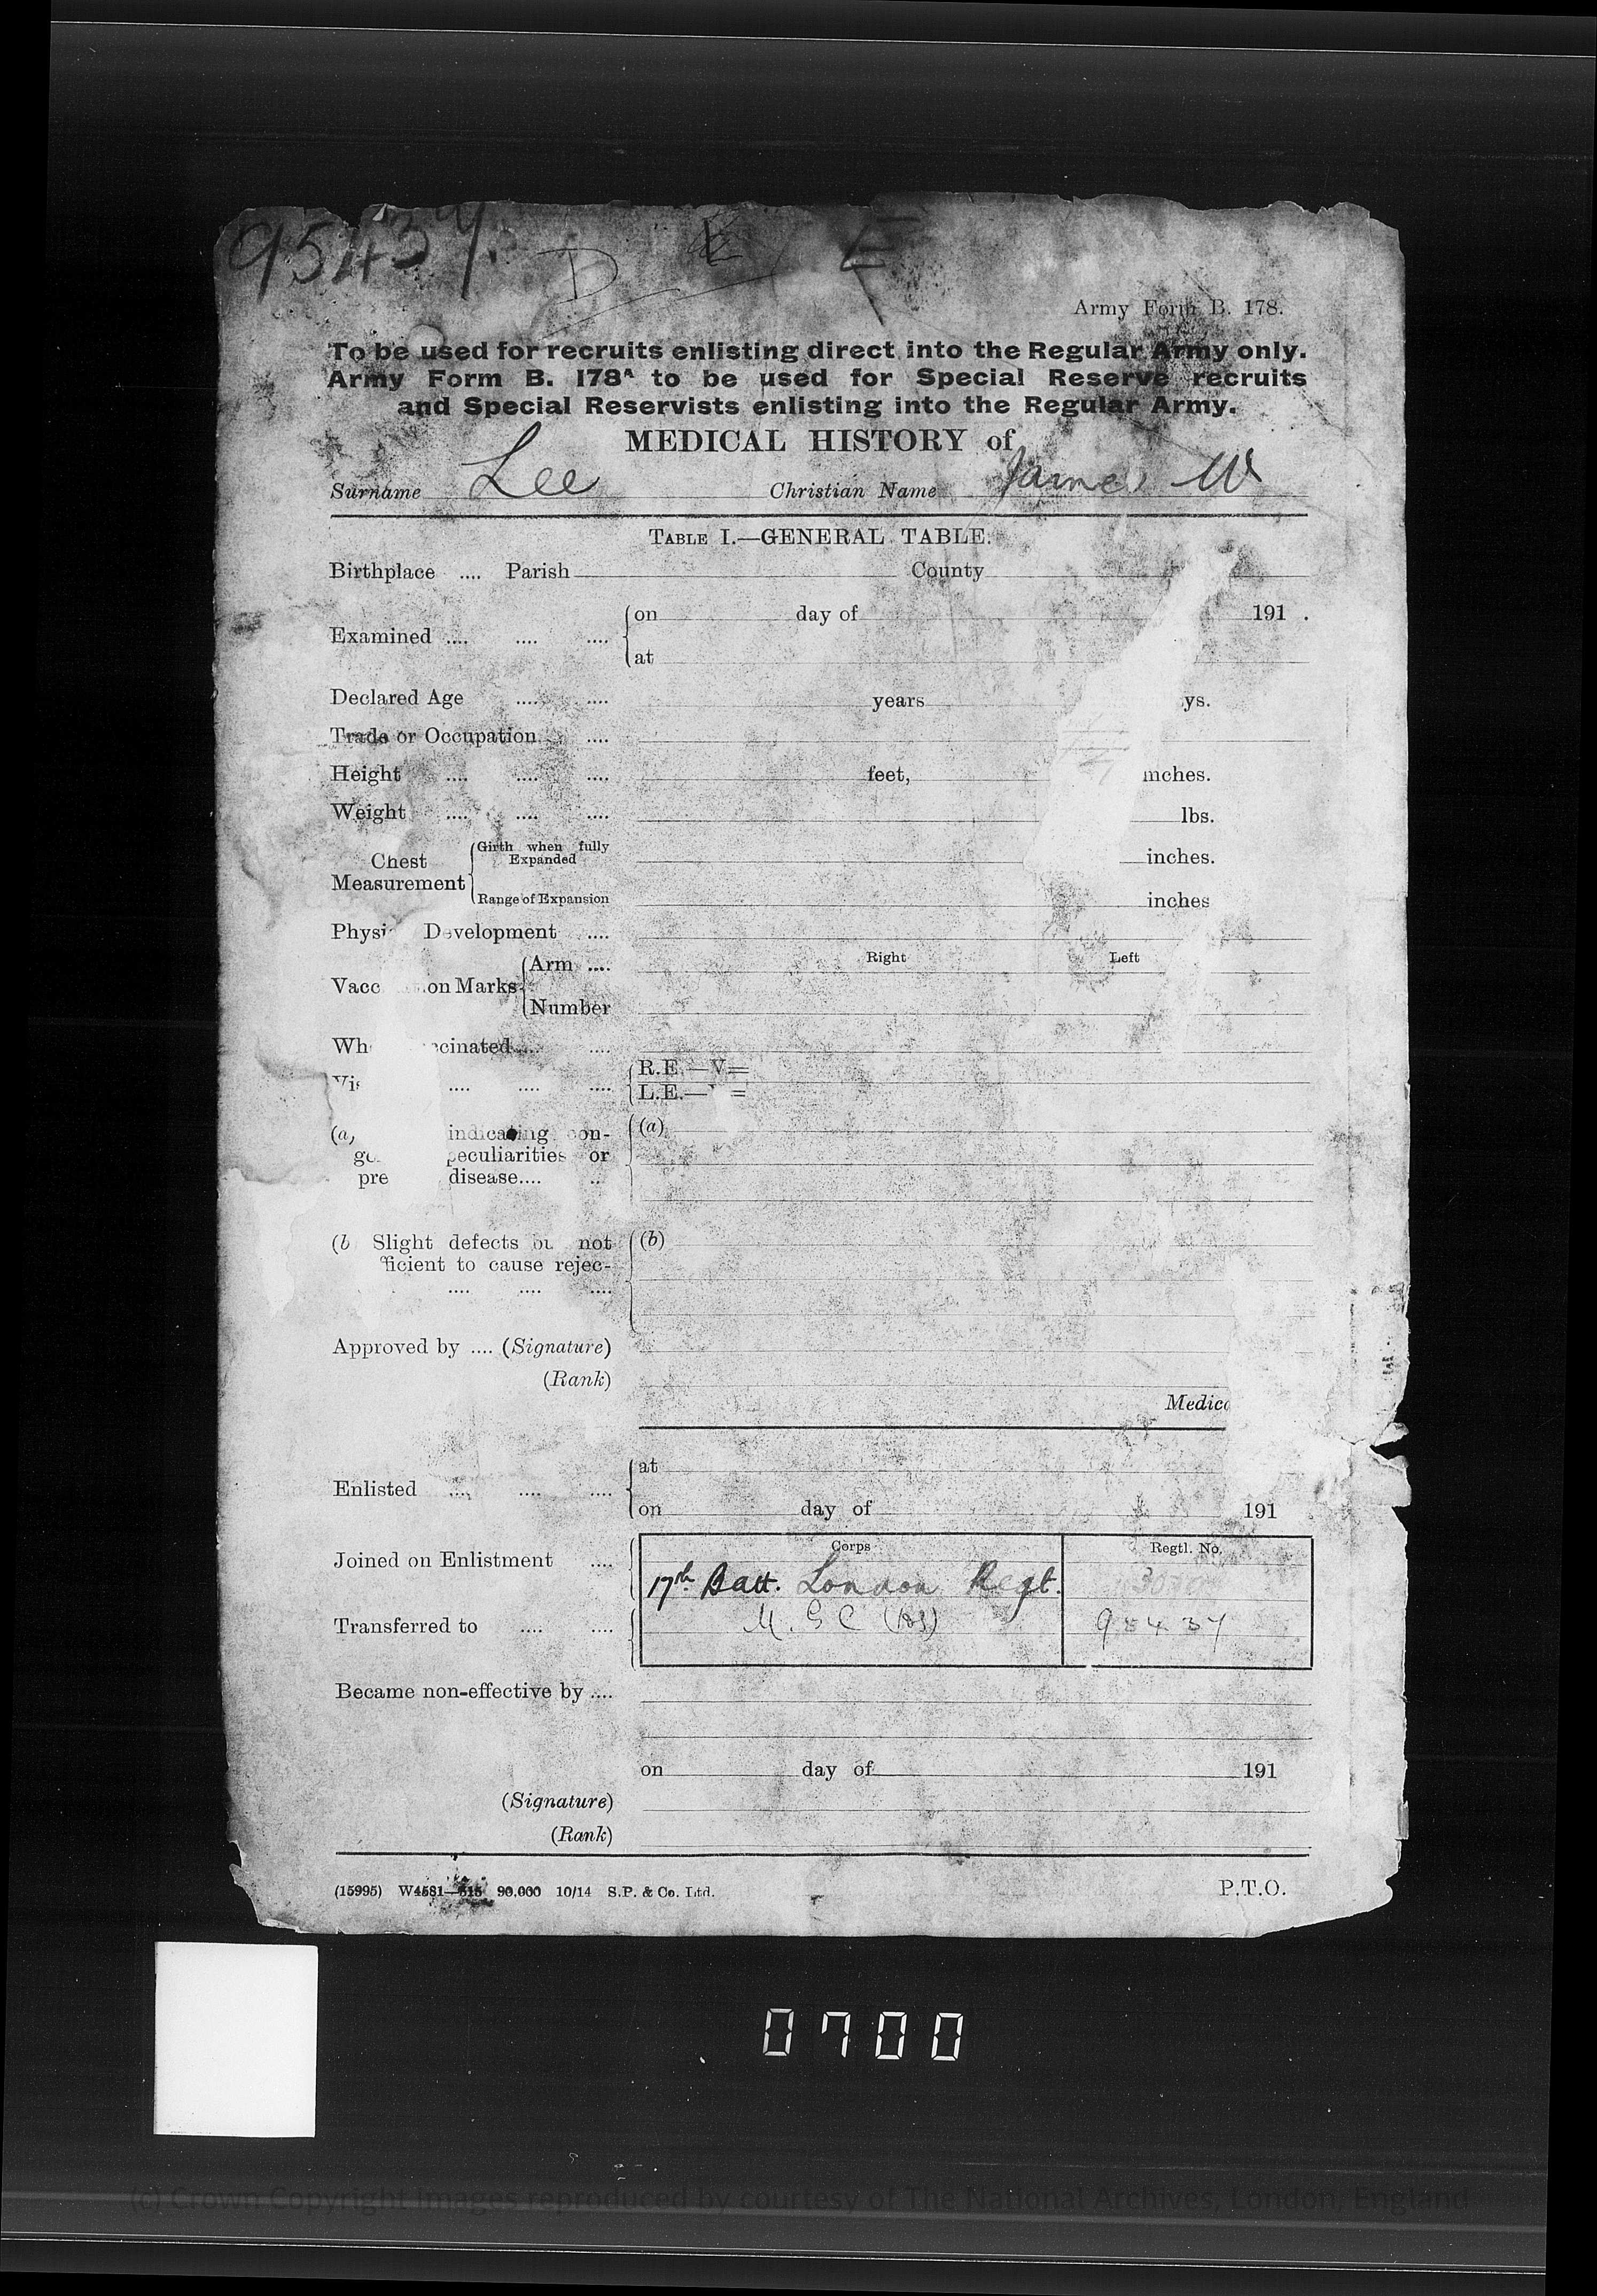 95437
D E
Army Form B. 178.
To be used for recruits enlisting direct into the Regular Army only.
Army Form B. 178A to be used for Special Reserve recruits
and Special Reservists enlisting into the Regular Army.
MEDICAL HISTORY of
Surname Lee Christian Name James W
TABLE I.—GENERAL TABLE.
Birthplace .... Parish County
Examined .... .... .... on day of 191 .
at
Declared Age .... .... years ys.
Trade or Occupation .... ....
Height .... .... .... feet, inches.
Weight .... .... .... lbs.
Chest Measurement Girth when fully Expanded inches.
Range of Expansion inches
Physi Development ....
Right Left
Vacc on Marks Arm ....
Number
Wh ccinated .... ....
Vis .... .... .... R.E.—V=
L.E.— =
(a, indicating con- (a)
ge peculiarities or
pre disease.... ..
(b Slight defects bu not (b)
ficient to cause rejec-
.... .... ....
Approved by .... (Signature)
(Rank)
Medic
Enlisted .... .... .... at
on day of 191
Corps Regtl. No.
Joined on Enlistment .... 17th Batt. London Regt.
Transferred to .... .... M.G.C. 95437
Became non-effective by ....
on day of 191
(Signature)
(Rank)
(15995) W4581—515 90,000 10/14 S.P. & Co. Ltd. P.T.O.
0700
(c) Crown Copyright Images reproduced by courtesy of The National Archives, London, England